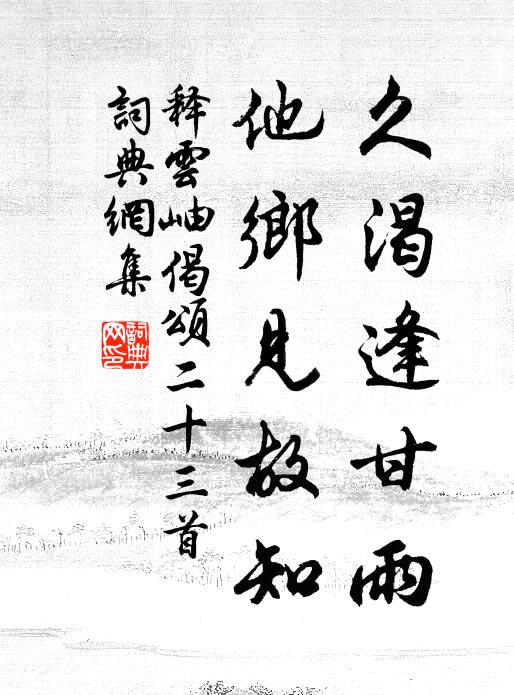 久渴逢甘雨
他鄉見故知
释雲岫偈頌二十三首
詞典網集
詞典網印